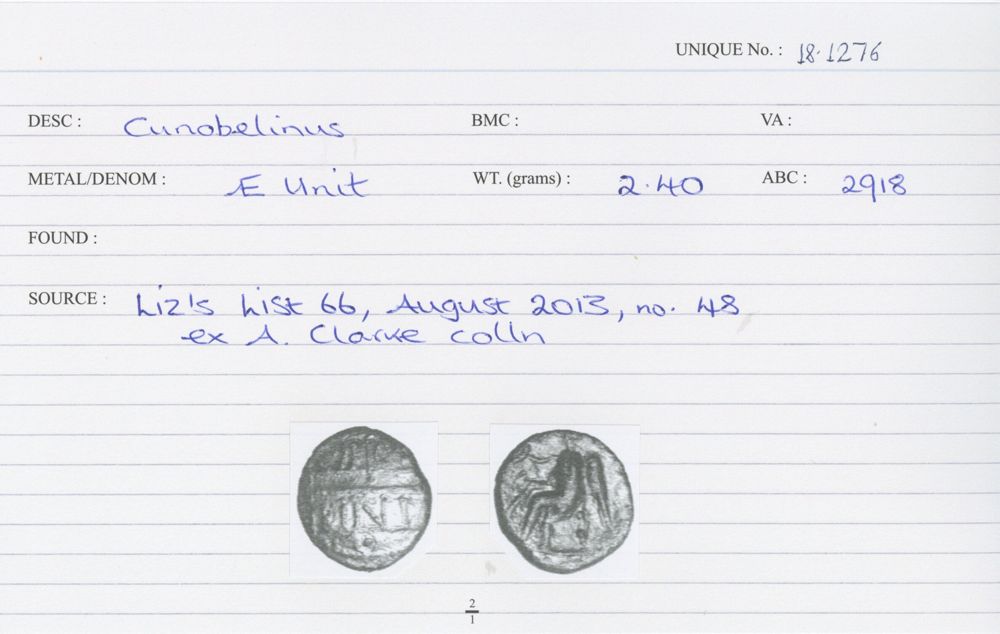 UNIQUE No. : 18.1276
DESC : Cunobelinus BMC : VA :
METAL/DENOM : Æ Unit WT. (grams) : 2.40 ABC : 2918
FOUND :
SOURCE : Liz's List 66, August 2013, no. 48
ex A. Clarke colln
2
1